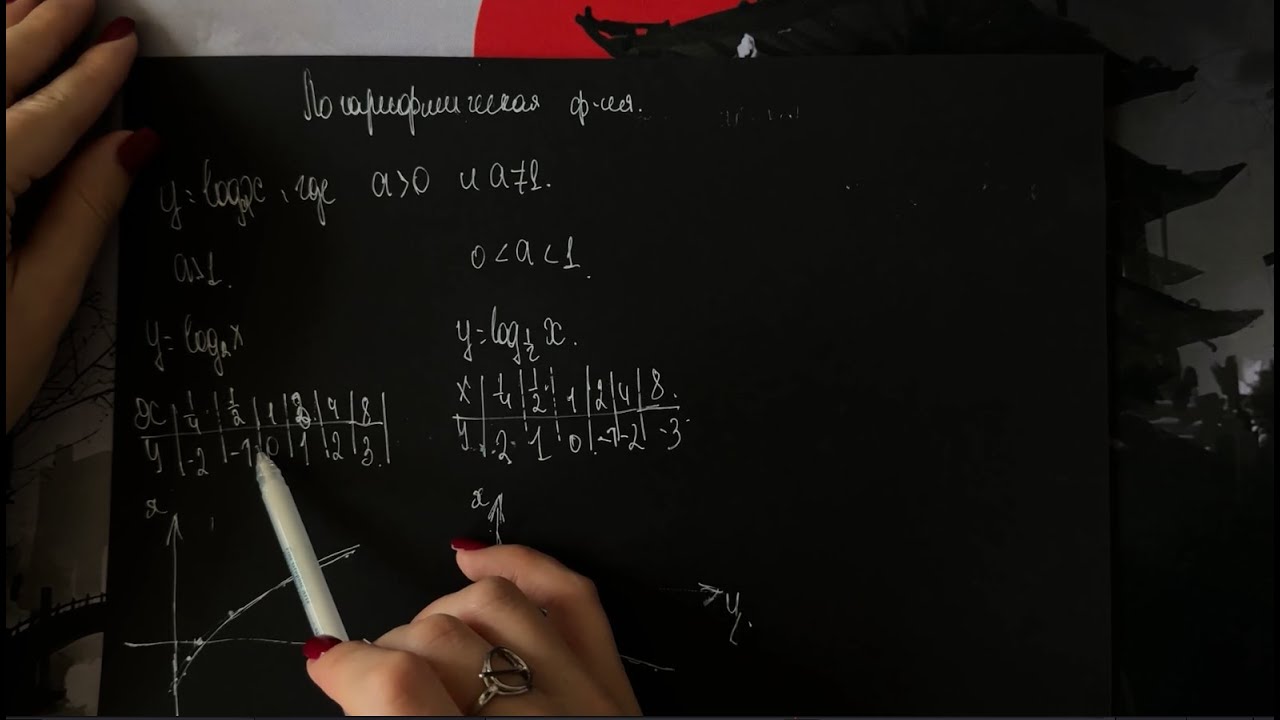 Логарифмическая ф-ия.
y = logₐx, где a>0 и a≠1.
a>1.
0 < a < 1.
y = log₂x
y = log½ x.
x | 1/4 | 1/2 | 1 | 2 | 4 | 8
y | -2 | -1 | 0 | 1 | 2 | 3
x | 1/4 | 1/2 | 1 | 2 | 4 | 8
y | 2 | 1 | 0 | -1 | -2 | -3
x
x
y